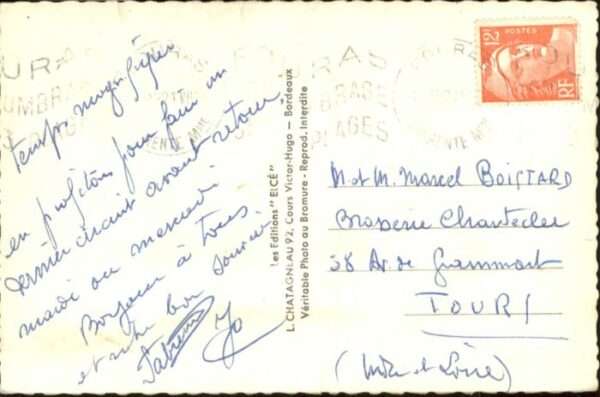 Temps magnifique
en profitons pour faire un
dernier circuit avant retour
mardi ou mercredi
Bonjour à tous
et notre bon souvenir
Jo
Les Editions "ELCÉ"
L. CHATAGNEAU 92, Cours Victor-Hugo — Bordeaux
Véritable Photo au Bromure - Reprod. Interdite
OMBRAGES
PLAGES
12F
POSTES
RF
M et M. Marcel BOISTARD
Brasserie Chantecler
58 Av de Grammont
TOURS
(Indre et Loire)